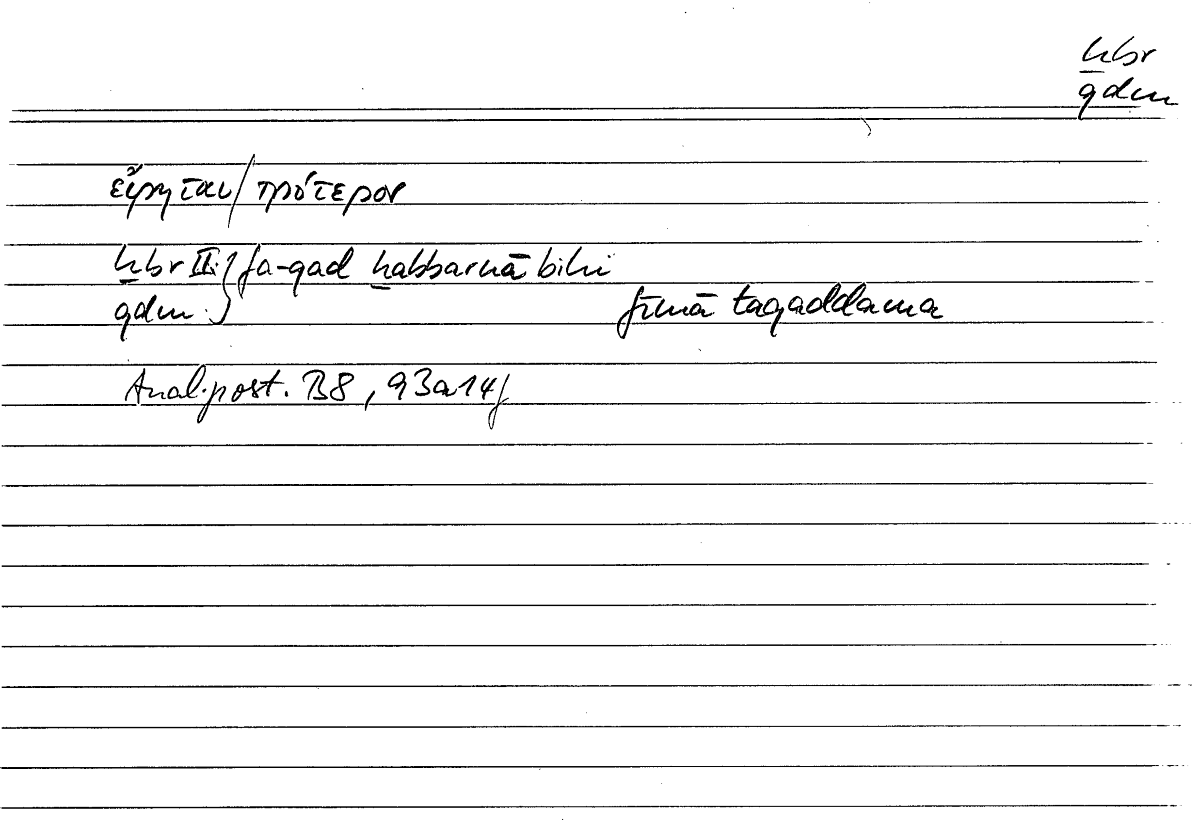 ḫbr
qdm
εἴρηται/πρότερον
ḫbr II.} fa-qad ḫabbarnā bihi
qdm.} fīmā taqaddama
Anal.post. B8, 93a14f